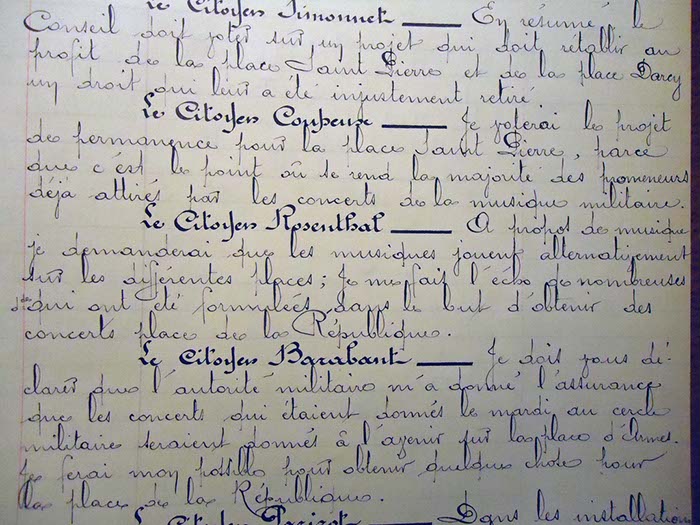 Le Citoyen Simonnet — En résumé le
Conseil doit voter sur un projet qui doit rétablir au
profit de la place Saint Pierre et de la place Darcy
un droit qui leur a été injustement retiré.
Le Citoyen Coupeux — Je voterai le projet
de permanence pour la place Saint Pierre, parce
que c'est le point où se rend la majorité des promeneurs
déjà attirés par les concerts de la musique militaire.
Le Citoyen Rosenthal — A propos de musique
je demanderai que les musiques jouent alternativement
sur les différentes places; Je me fait l'écho de nombreuses
qui ont été formulées dans le but d'obtenir des
concerts place de la République.
Le Citoyen Barabant — Je dois vous dé-
clarer que l'autorité militaire m'a donné l'assurance
que les concerts qui étaient donnés le mardi au cercle
militaire seraient donnés à l'avenir sur la place d'Armes.
Je ferai mon possible pour obtenir quelque chose pour
la place de la République.
Le Citoyen — Dans les installations